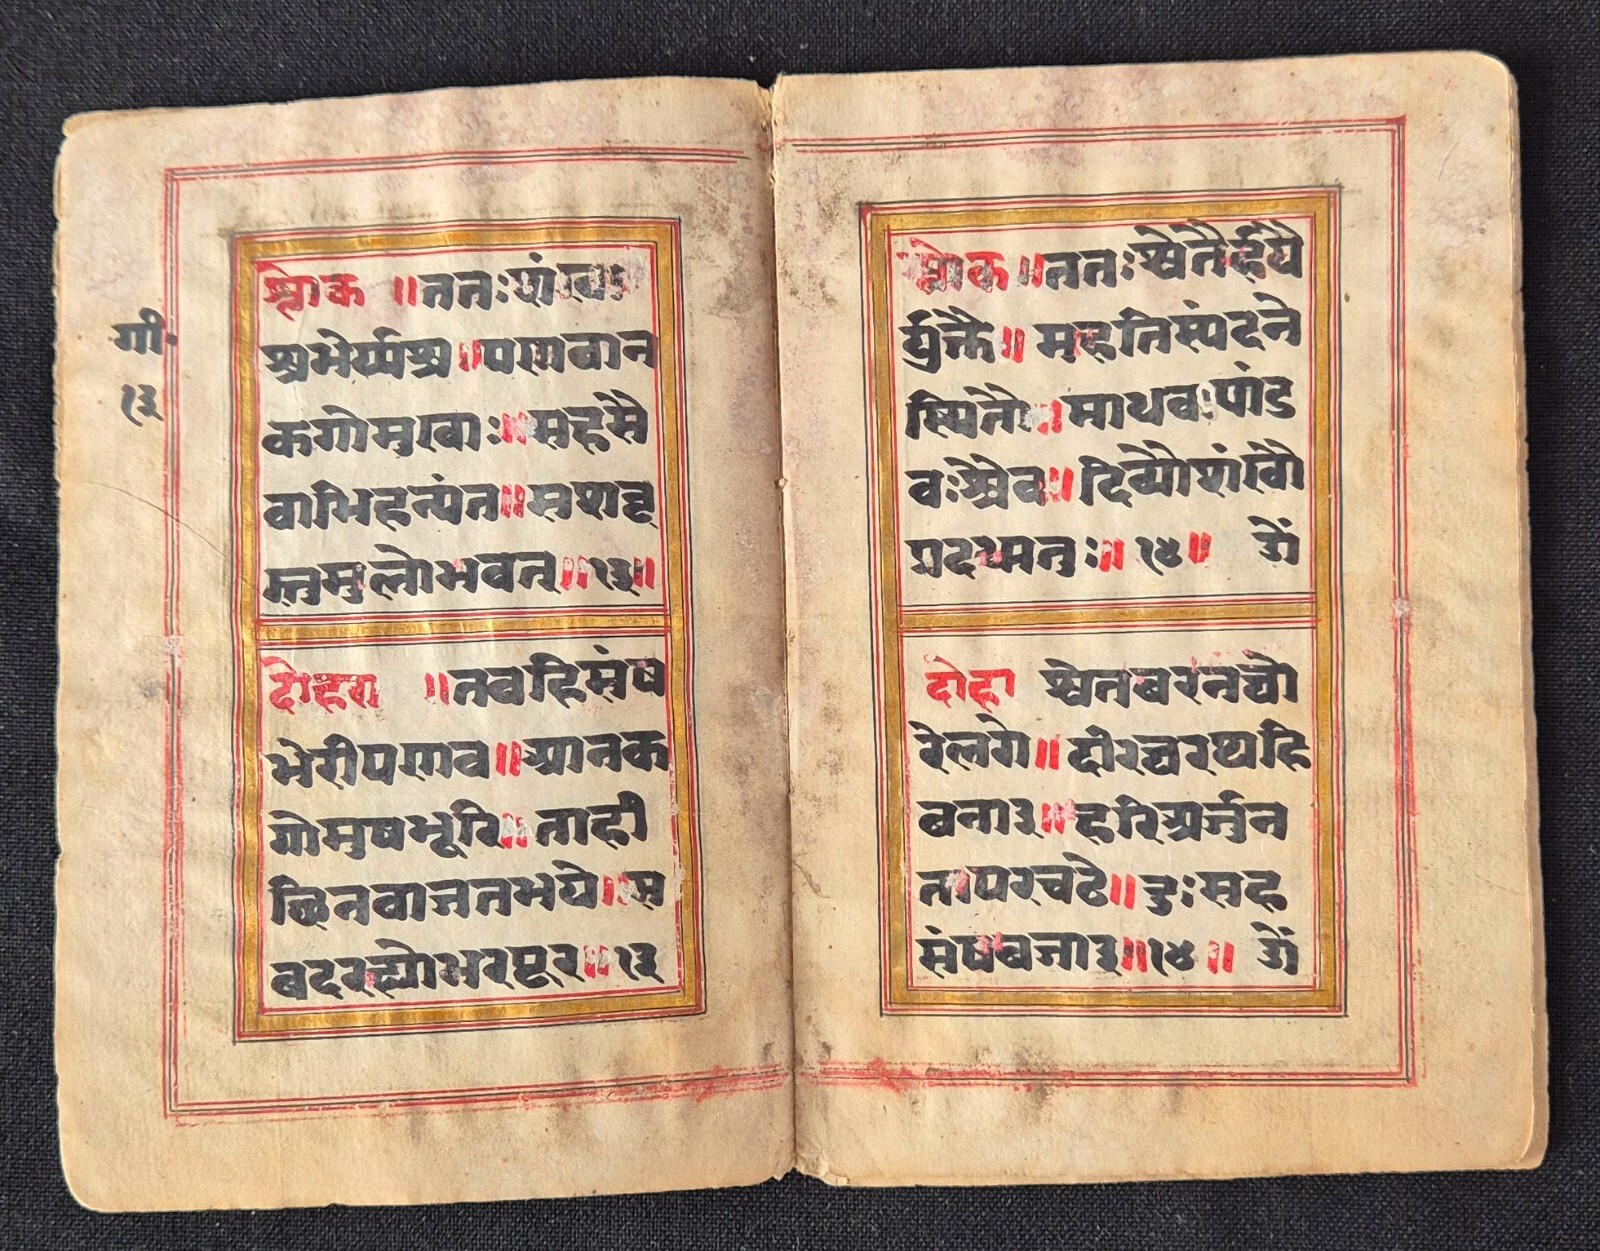 गी॰
१३
श्लोक ॥ ततः शंखा
श्चभेर्य्यश्च ॥ पणवान
कगोमुखाः ॥ सहसै
वाभिहन्यंत ॥ सशब्द
स्तुमुलोभवत् ॥ १३ ॥
दोहरा ॥ तबहिसंष
भेरीपणव ॥ आनक
गोमुषभूरि ॥ ताही
छिनबाजतभये ॥ स
बदरह्योभरपूर ॥ १३
श्लोक ॥ ततः श्वेतैर्हयै
र्युक्तै ॥ महतिस्पंदने
स्थितौ ॥ माधवः पांड
वःश्चैव ॥ दिव्यौशंखौ
प्रदध्मतुः ॥ १४ ॥ उों
दोहा श्वेतबरनघो
रेलगे ॥ दीरघरथहि
बनाइ ॥ हरिअर्जुन
तापरचढे ॥ दुःसह
संषबजाइ ॥ १४ ॥ उों